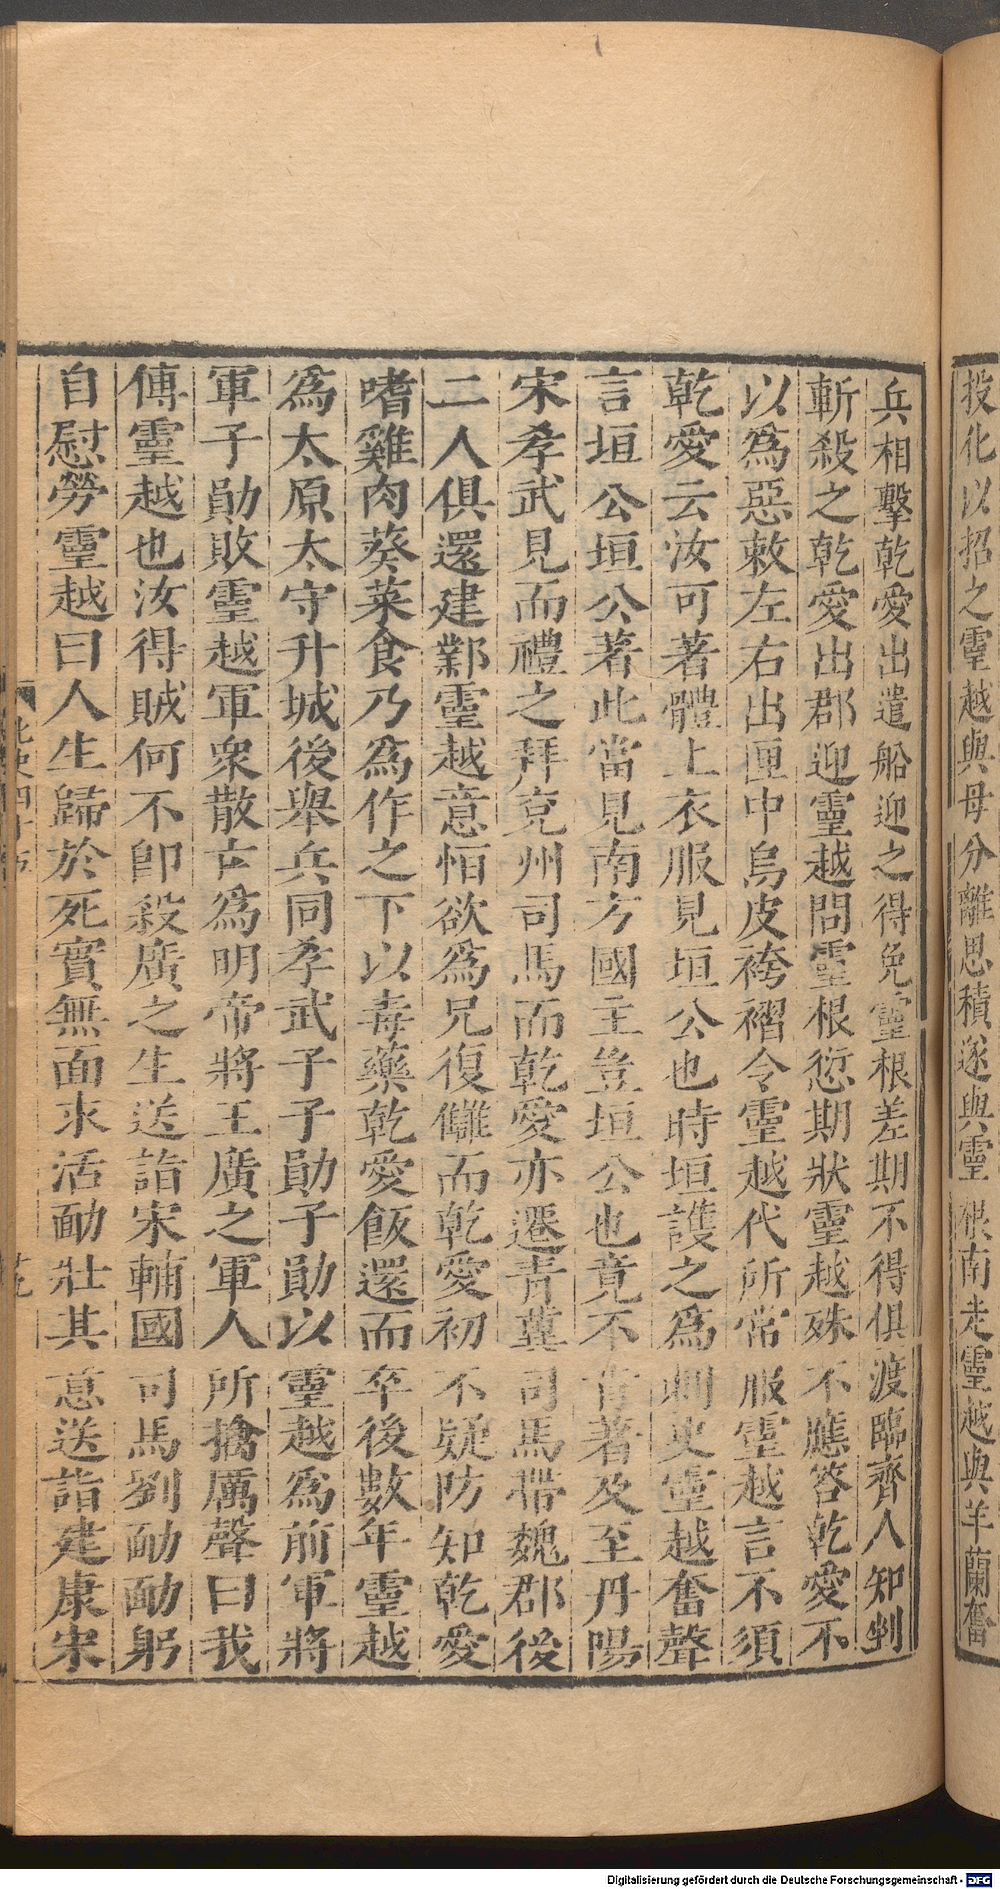 投化以招之靈越與母分離思積遂與靈根南走靈越與羊蘭奮
兵相擊乾愛出遣船迎之得免靈根差期不得俱渡臨齊人知剉
斬殺之乾愛出郡迎靈越問靈根愆期狀靈越殊不應答乾愛不
以爲惡敕左右出匣中烏皮袴褶令靈越代所常服靈越言不須
乾愛云汝可著體上衣服見垣公也時垣護之爲刺史靈越奮聲
言垣公垣公著此當見南方國主豈垣公也竟不肯著及至丹陽
宋孝武見而禮之拜兗州司馬而乾愛亦遷青冀司馬帶魏郡後
二人俱還建鄴靈越意恒欲爲兄復讎而乾愛初不疑防知乾愛
嗜雞肉葵菜食乃爲作之下以毒藥乾愛飯還而卒後數年靈越
爲太原太守升城後舉兵同孝武子子勛子勛以靈越爲前軍將
軍子勛敗靈越軍衆散亡爲明帝將王廣之軍人所擒厲聲曰我
傅靈越也汝得賊何不卽殺廣之生送詣宋輔國司馬劉勔勔躬
自慰勞靈越曰人生歸於死實無面求活勔壯其意送詣建康宋
北史四十五
Digitalisierung gefördert durch die Deutsche Forschungsgemeinschaft - DFG